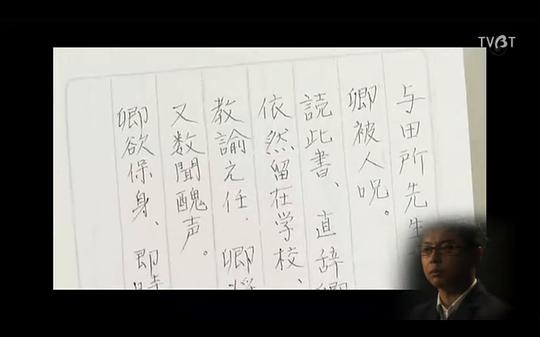 TVBT
与田所先生
卿被人呪。
読此書、直辞卿
依然留在学校、
教諭之任、卿将
又数聞醜声。
卿欲保身、即時